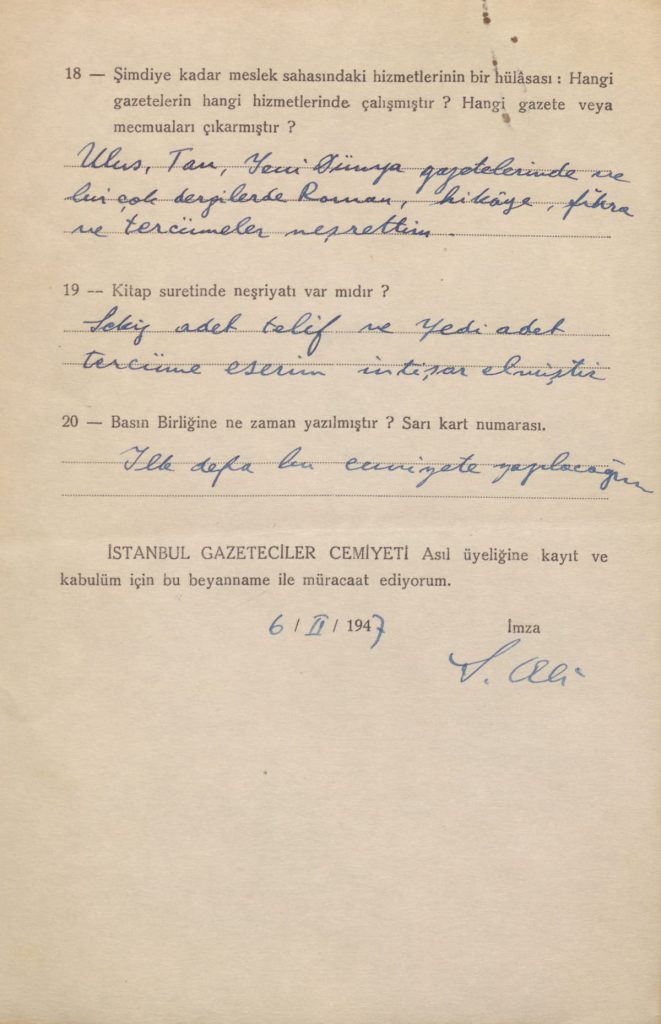 18 — Şimdiye kadar meslek sahasındaki hizmetlerinin bir hülâsası : Hangi
gazetelerin hangi hizmetlerinde çalışmıştır ? Hangi gazete veya
mecmuaları çıkarmıştır ?
Ulus, Tan, Yeni Dünya gazetelerinde ve
bir çok dergilerde Roman, hikâye, fıkra
ve tercümeler neşrettim.
19 -- Kitap suretinde neşriyatı var mıdır ?
Sekiz adet telif ve yedi adet
tercüme eserim intişar etmiştir
20 — Basın Birliğine ne zaman yazılmıştır ? Sarı kart numarası.
İlk defa bu cemiyete yazılacağım
İSTANBUL GAZETECİLER CEMİYETİ Asıl üyeliğine kayıt ve
kabulüm için bu beyanname ile müracaat ediyorum.
6 / II / 1947 İmza
S. Ali